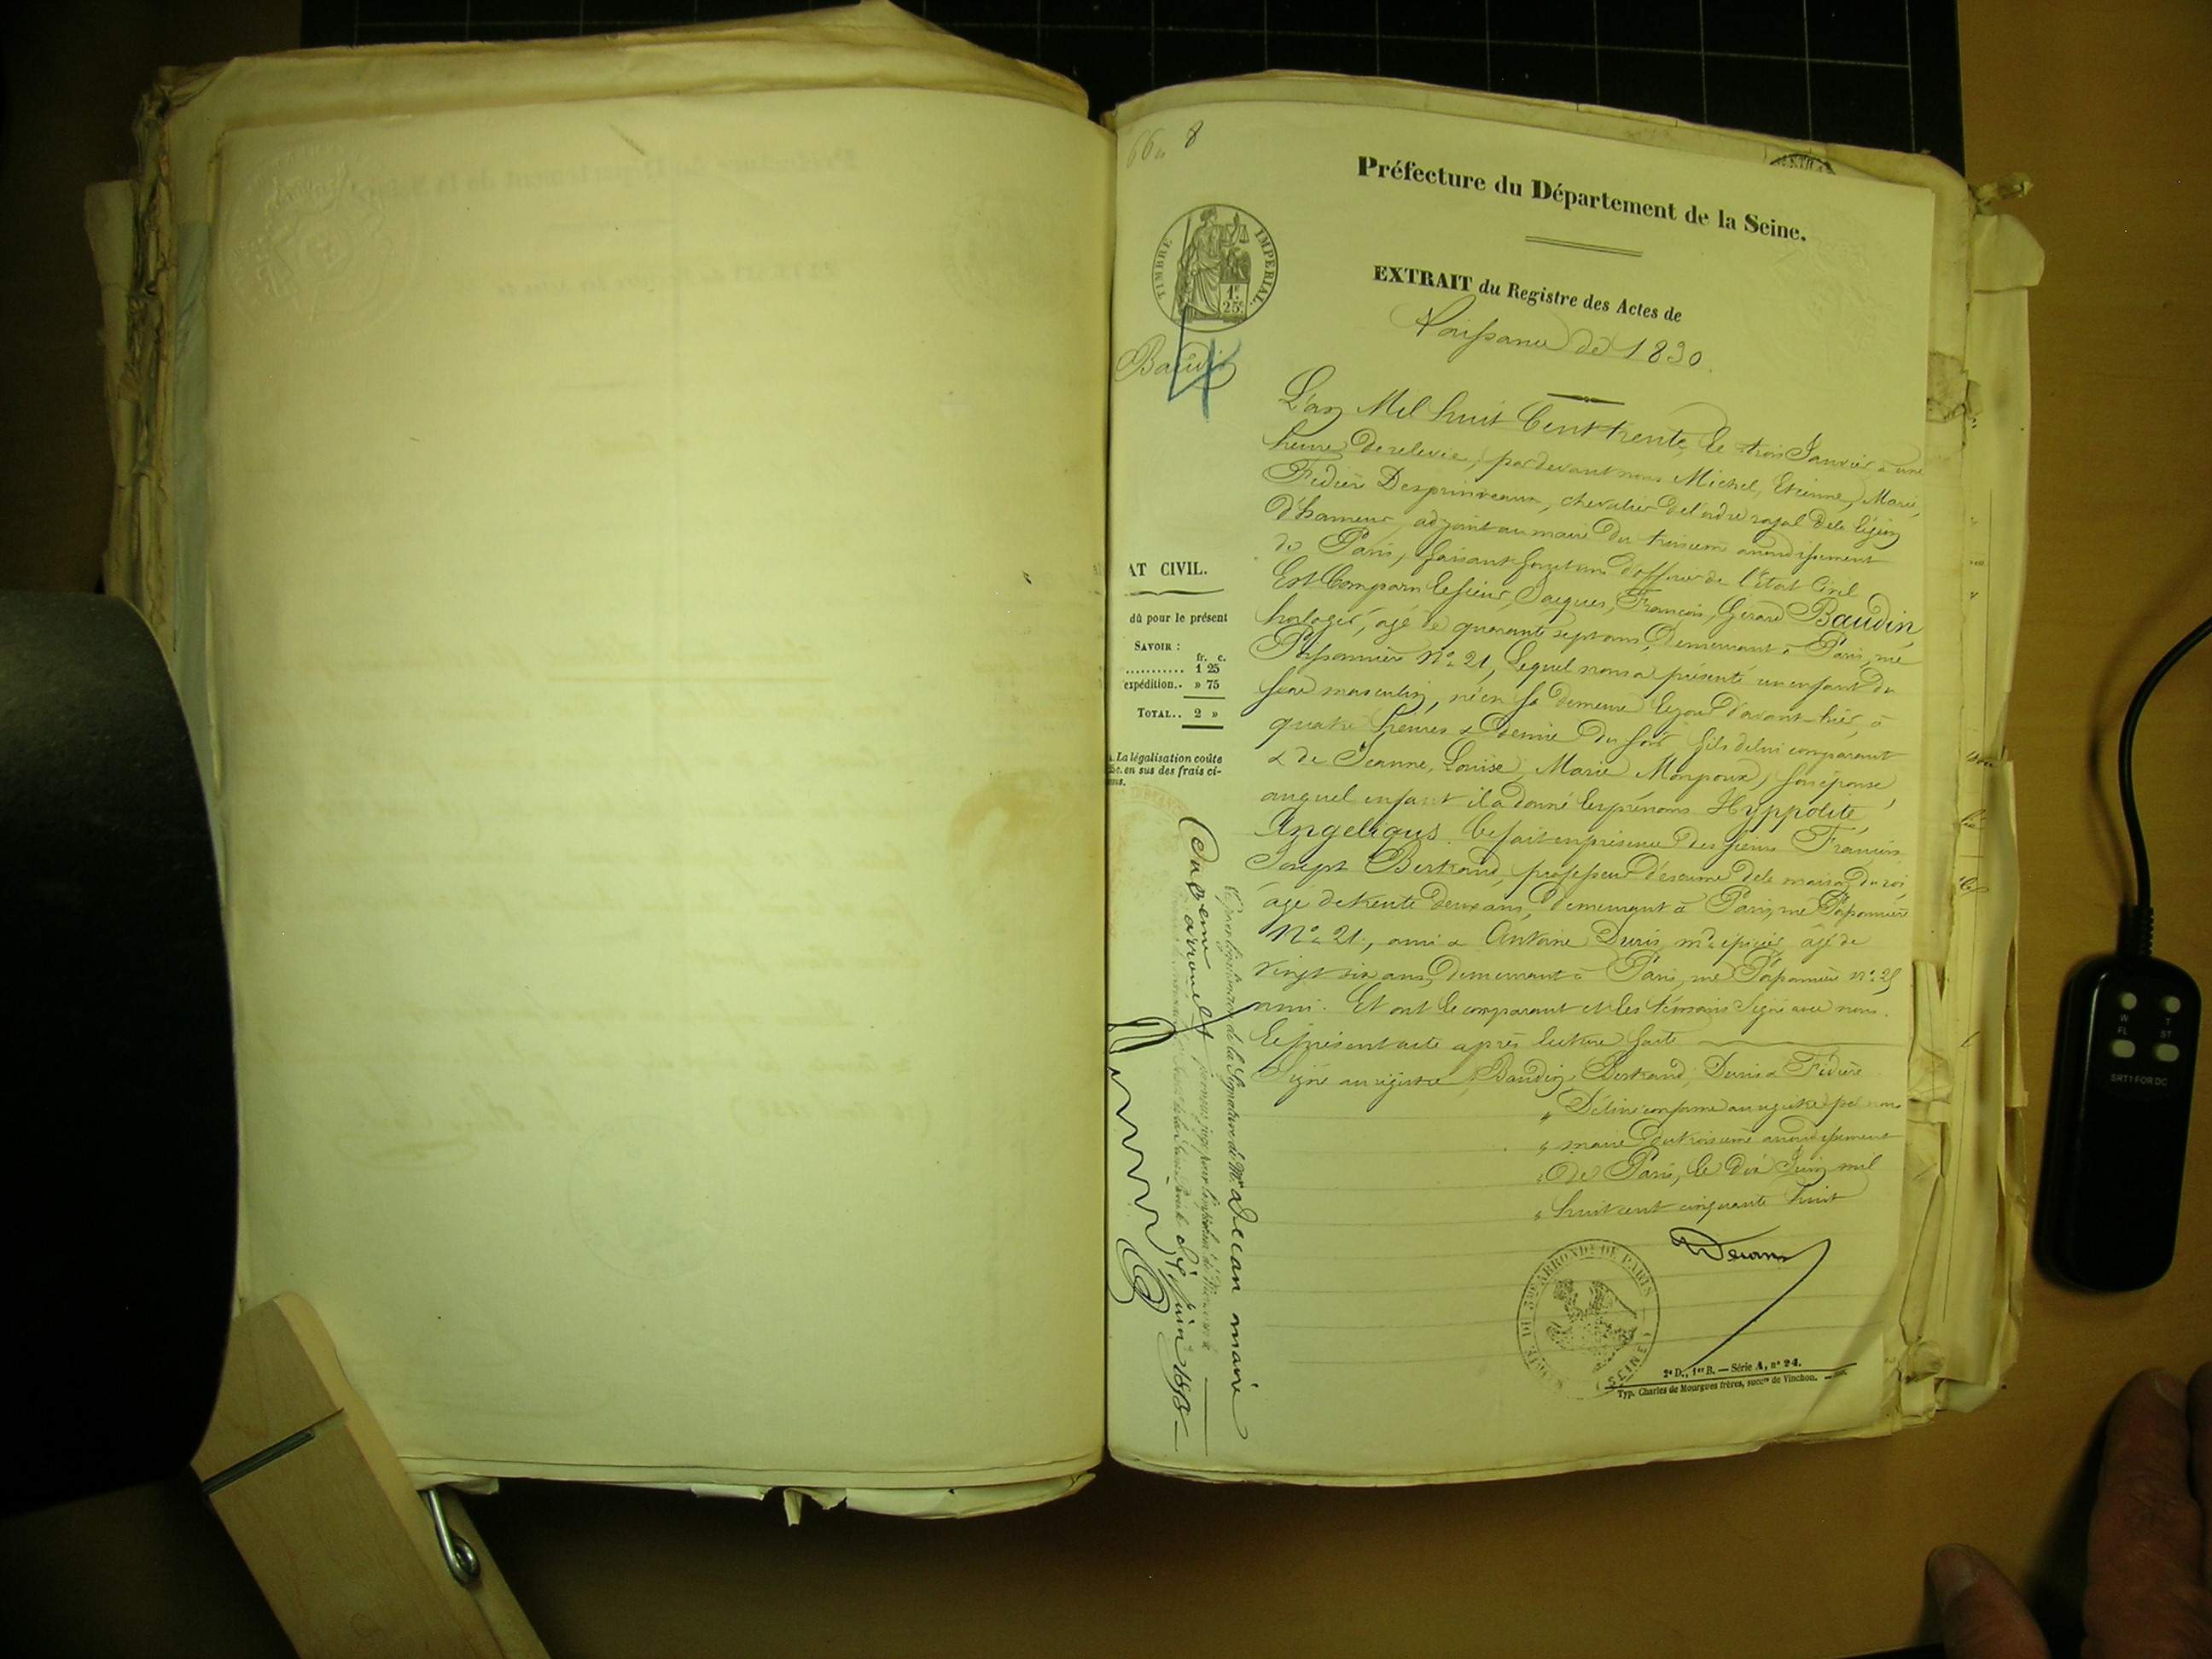 8
Préfecture du Département de la Seine.
TIMBRE IMPERIAL.
1f.
25c.
EXTRAIT du Registre des Actes de
Naissance de 1830.
Baudin
4
L'an Mil huit Cent trente, le trois Janvier à une
heure de relevée, par devant nous Michel, Etienne, Marie,
Fidière Desprinveaux, chevalier de l'ordre royal de la légion
d'honneur, adjoint au maire du troisième arrondissement
de Paris, faisant fonctions d'officier de l'État Civil
Est Comparu le sieur, Jacques, François, Gérard Baudin,
horloger, agé de quarante sept ans, demeurant à Paris, rue
Poissonnière No. 21, lequel nous a présenté un enfant du
sexe masculin, né en sa demeure le jour d'avant-hier, à
quatre heures & demie du soir, fils de lui comparant
& de Jeanne, Louise, Marie Monpoux, son épouse,
auquel enfant il a donné les prénoms Hyppolite
Angeliqus. Ce fait en présence des sieurs François
Joseph Bertrand, professeur d'escrime de la maison du roi,
âgé de trente deux ans, demeurant à Paris, rue Poissonnière
No. 21, ami & Antoine Duris, md. épicier, âgé de
vingt six ans, demeurant à Paris, rue Poissonnière no. 25
ami. Et ont le comparant et les témoins signé avec nous
le présent acte après lecture faite
Signé au registre, Baudin, Bertrand, Duris & Fidière
" Délivré conforme au registre par nous
" maire du troisième arrondissement
" de Paris, le dix Juin mil
" huit cent cinquante huit
AT CIVIL.
dû pour le présent
SAVOIR :
fr. c.
........... 1 25
expédition.. » 75
TOTAL.. 2 »
La légalisation coûte
c. en sus des frais ci-
us.
légalisation de la Signature de Mr. Decan maire
du 3eme arrond.t
dix juin 1858
MAIRIE DU 3ME ARRONDT. DE PARIS
(SEINE)
2e D., 1er B. — Série A, n° 24.
Typ. Charles de Mourgues frères, succrs de Vinchon. —
W
T
FL
ST
SRT1 FOR DC